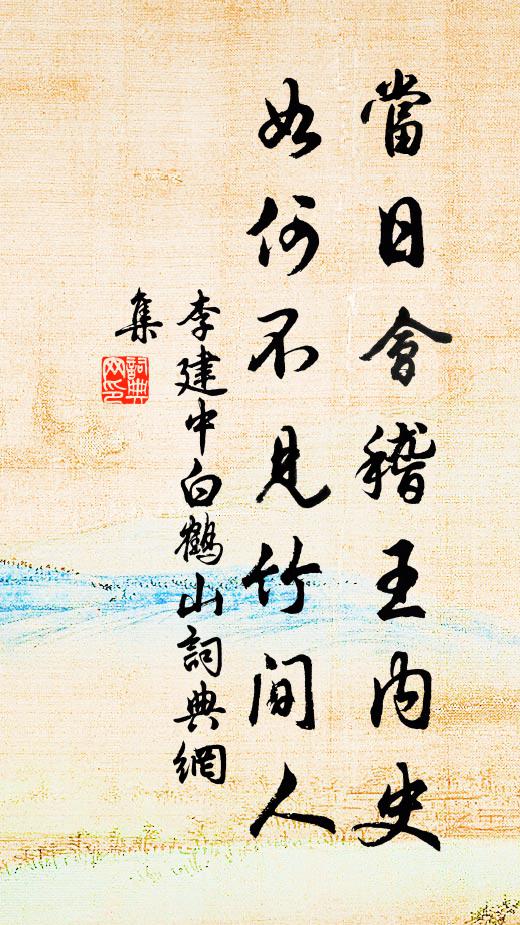 當日會稽王內史
如何不見竹間人
李建中白鶴山詞典網
集
詞典
网印